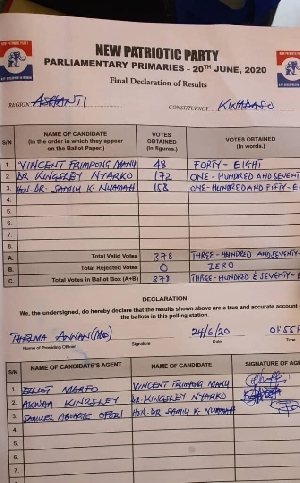 NEW PATRIOTIC PARTY
PARLIAMENTARY PRIMARIES - 20TH JUNE, 2020
Final Declaration of Results
REGION ASHANTI CONSTITUENCY KWADASO
S/N NAME OF CANDIDATE (In the order in which they appear on the Ballot Paper.) VOTES OBTAINED (In figures.) VOTES OBTAINED (In words.)
1 VINCENT FRIMPONG MANU 48 FORTY-EIGHT
2 DR KINGSLEY NYARKO 172 ONE-HUNDRED AND SEVENT
3 HON. DR. SAMIU K NUAMAH 158 ONE-HUNDRED AND FIFTY-E
4.
5.
6.
7.
8.
A. Total Valid Votes 378 THREE-HUNDRED AND SEVENTY-
B. Total Rejected Votes 0 ZERO
C. Total Votes in Ballot Box (A+B) 378 THREE-HUNDRED & SEVENTY-
DECLARATION
We, the undersigned, do hereby declare that the results shown above are a true and accurate account
the ballots in this polling station.
THELMA ANNAN 24/6/20
Name of Presiding Officer Signature Date Time
S/N NAME OF CANDIDATE'S AGENT NAME OF CANDIDATE SIGNATURE OF AG
1 MARFO VINCENT FRIMPONG MANU
2 KINGSLEY DR. KINGSLEY NYARKO
3 SAMUEL OFORI HON. DR SAMIU K NUAMAH
4.
5.
6.
7.